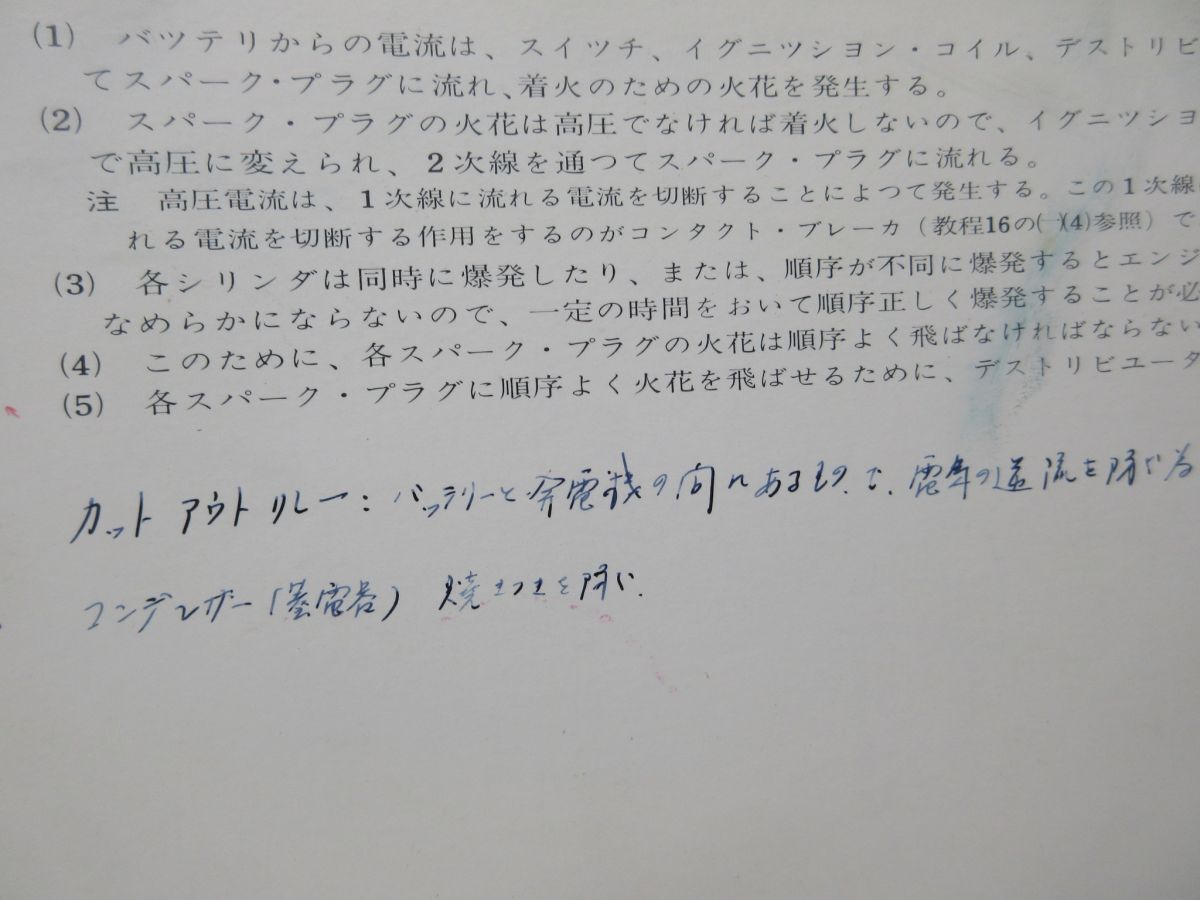 (1) バツテリからの電流は、スイツチ、イグニツシヨン・コイル、デストリビ
てスパーク・プラグに流れ、着火のための火花を発生する。
(2) スパーク・プラグの火花は高圧でなければ着火しないので、イグニツシヨ
で高圧に変えられ、2次線を通つてスパーク・プラグに流れる。
注 高圧電流は、1次線に流れる電流を切断することによつて発生する。この1次線
れる電流を切断する作用をするのがコンタクト・ブレーカ(教程16の㈠(4)参照)で
(3) 各シリンダは同時に爆発したり、または、順序が不同に爆発するとエンジ
なめらかにならないので、一定の時間をおいて順序正しく爆発することが必
(4) このために、各スパーク・プラグの火花は順序よく飛ばなければならない
(5) 各スパーク・プラグに順序よく火花を飛ばせるために、デストリビユータ
カットアウトリレー:バッテリーと発電機の間にあるもので、電気の逆流を防ぐ為
コンデンザー(蓄電器) 焼を防ぐ.